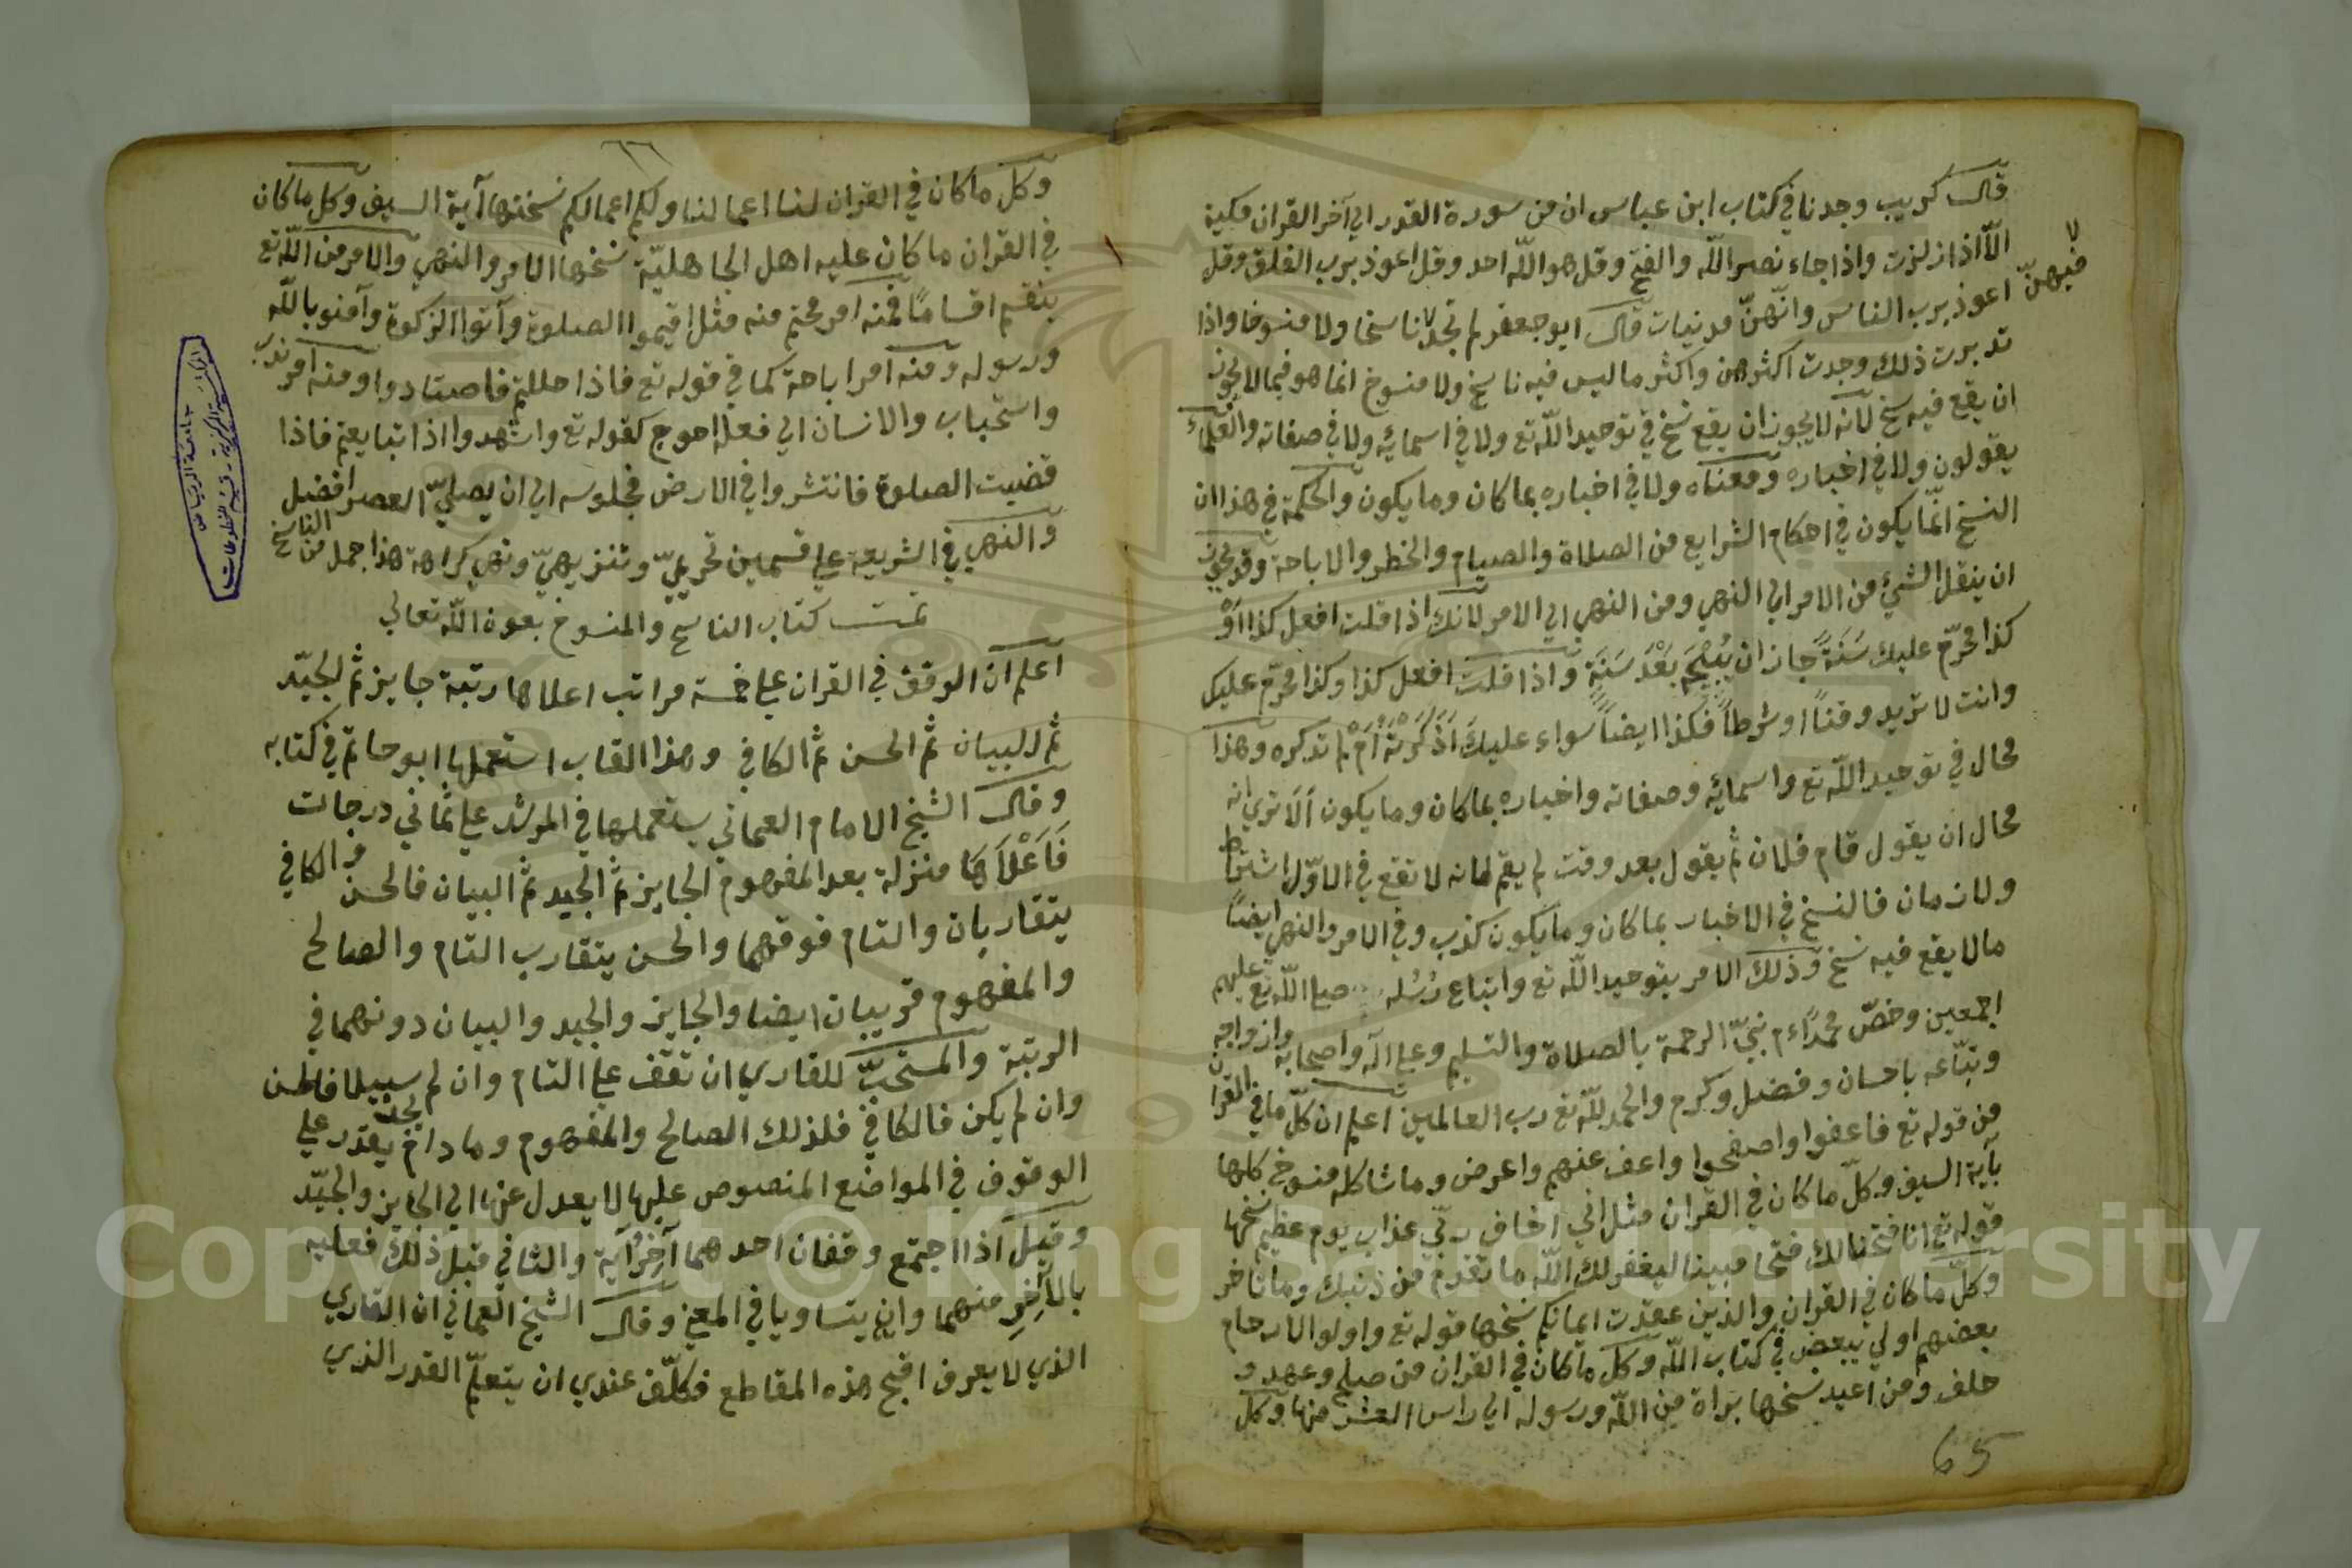 قال كريب وجدنا في كتاب ابن عباس ان من سورة القدر الي آخر القران مكية
الّا اذا زلزت واذا جاء نصر اللّه والفتح وقل هو اللّه احد وقل اعوذ برب الفلق وقل
اعوذ برب الناس وانّهنّ مدنيات قال ابو جعفر لم نجد ناسخا ولا منسوخا واذا
فيهنّ
تدبرت ذلك وجدت اكثرهن واكثر ما ليس فيه ناسخ ولا منسوخ انما هو فيما لا يجوز
ان يقع فيه نسخ لانه لا يجوز ان يقع نسخ في توحيد اللّه تع ولا في اسمائه ولا في صفاته والعلماء
يقولون ولا في اخباره ومعناه ولا في اخباره بما كان وما يكون والحكمة في هذا ان
النسخ انّما يكون في احكام الشرايع من الصلاة والصيام والحظر والاباحة وقد يجوز
ان ينقل الشيئ من الامر الي النهي ومن النهي الي الامر لانك اذا قلت افعل كذا اَوْ
كذا محرّم عليك سَنَةً جاز ان يُبيحَ بَعْدَ سَنَة واذا قلت افعل كذا وكذا محرّم عليك
وانت لا تريد وقتاً او شرطاً فكذا ايضاً سواء عليك اَذَكَرْتَهُ اَمْ لم تذكره وهذا
محال في توحيد اللّه تع واسمائه وصفاته واخباره بما كان وما يكون اَلَا تري انه
محال ان يقول قام فلان ثم يقول بعد وقت لم يقم لانه لا تقع في الاوّل اشتراط
ولا زمان فالنسخ في الاخبار بما كان وما يكون كذب وفي الامر والنهي ايضاً
مالا يقع فيه نسخ وذلك الامر بتوحيد اللّه تع واتباع رُسُله صلي اللّه تع عليهم
اجمعين وخصّ محمّداً م نبيّ الرحمة بالصلاة والتسليم وعلي آله واصحابه وازواجه
وتبّاعه باحسان وفضل وكرم والحمد للّه تع رب العالمين اعلم ان كلّ ما في القران
من قوله تع فاعفوا واصفحوا واعف عنهم واعرض وما شاكله منسوخ كلها
بآية السيف وكلّ ما كان في القران مثل اني اخاف ربّي عذاب يوم عظيم نسخها
قوله تع انا فتحنا لك فتحا مبينا ليغفر لك اللّه ما تقدم من ذنبك وما تاخر
وكلّ ما كان في القران والذين عقدت ايمانكم نسخها قوله تع واولوا الارحام
بعضهم اولي ببعض في كتاب اللّه وكل ما كان في القران من صلح وعهد و
حلف ومن اعيد نسخها براة من اللّه ورسوله الي راس العشر منها وكل
65
٦٦
وكل ما كان في القران لنا اعمالنا ولكم اعمالكم نسختها آية السيف وكل ما كان
في القران ما كان عليه اهل الجاهليّة نسخها الامر والنهي والامر من اللّه تع
ينقسم اقسامًا فمنه امر محتم منه مثل اقيموا الصلوة وآتوا الزكوة وآمنو باللّه
ورسوله ومنه امر اباحة كما في قوله تع فاذا حللتم فاصتادوا ومنه امر ندب
واستحباب والانسان الي فعله احوج كقوله تع واشهدوا اذا تبايعتم فاذا
قضيت الصلوة فانتشروا في الارض فجلوسه الي ان يصليّ العصر افضل
والنهي في الشريعة علي قسمين تحريميّ وتنزيهيّ ونهي كراهة هذا جمل من الناسخ
تمت كتاب الناسخ والمنسوخ بعون اللّه تعالي
اعلم انّ الوقف في القران علي خمسة مراتب اعلاها رتبة جايز ثم الجيّد
ثم البيان ثم الحسن ثم الكافي وهذا القاب استعملها ابو حاتم في كتابه
وقال الشيخ الامام العماني يستعملها في المرشد علي ثماني درجات
فَاَعْلَاهَا منزلة بعد المفهوم الجايز ثم الجيد ثم البيان فالحسن والكافي
يتقاربان والتام فوقهما والحسن يتقارب التام والصالح
والمفهوم قريبان ايضا والجايز والجيد والبيان دونهما في
الرتبة والمستحبّ للقاري ان تقف علي التام وان لم سبيلا فالحسن
يجد
وان لم يكن فالكافي فلذلك الصالح والمفهوم وما دام يقدر علي
الوقوف في المواضع المنصوص عليها لا يعدل عنها الي الجايز والجيّد
وقيل اذا اجتمع وقفان احدهما آخِرُ آية والثاني قبل ذلك فعليه
بالآخِرِ منهما وان يتساويا في المعني وقال الشيخ العماني ان القاري
الذي لا يعرف اقبح هذه المقاطع فكلّف عندي ان يتعلّم القدر الذي
Copyright © King Saud University